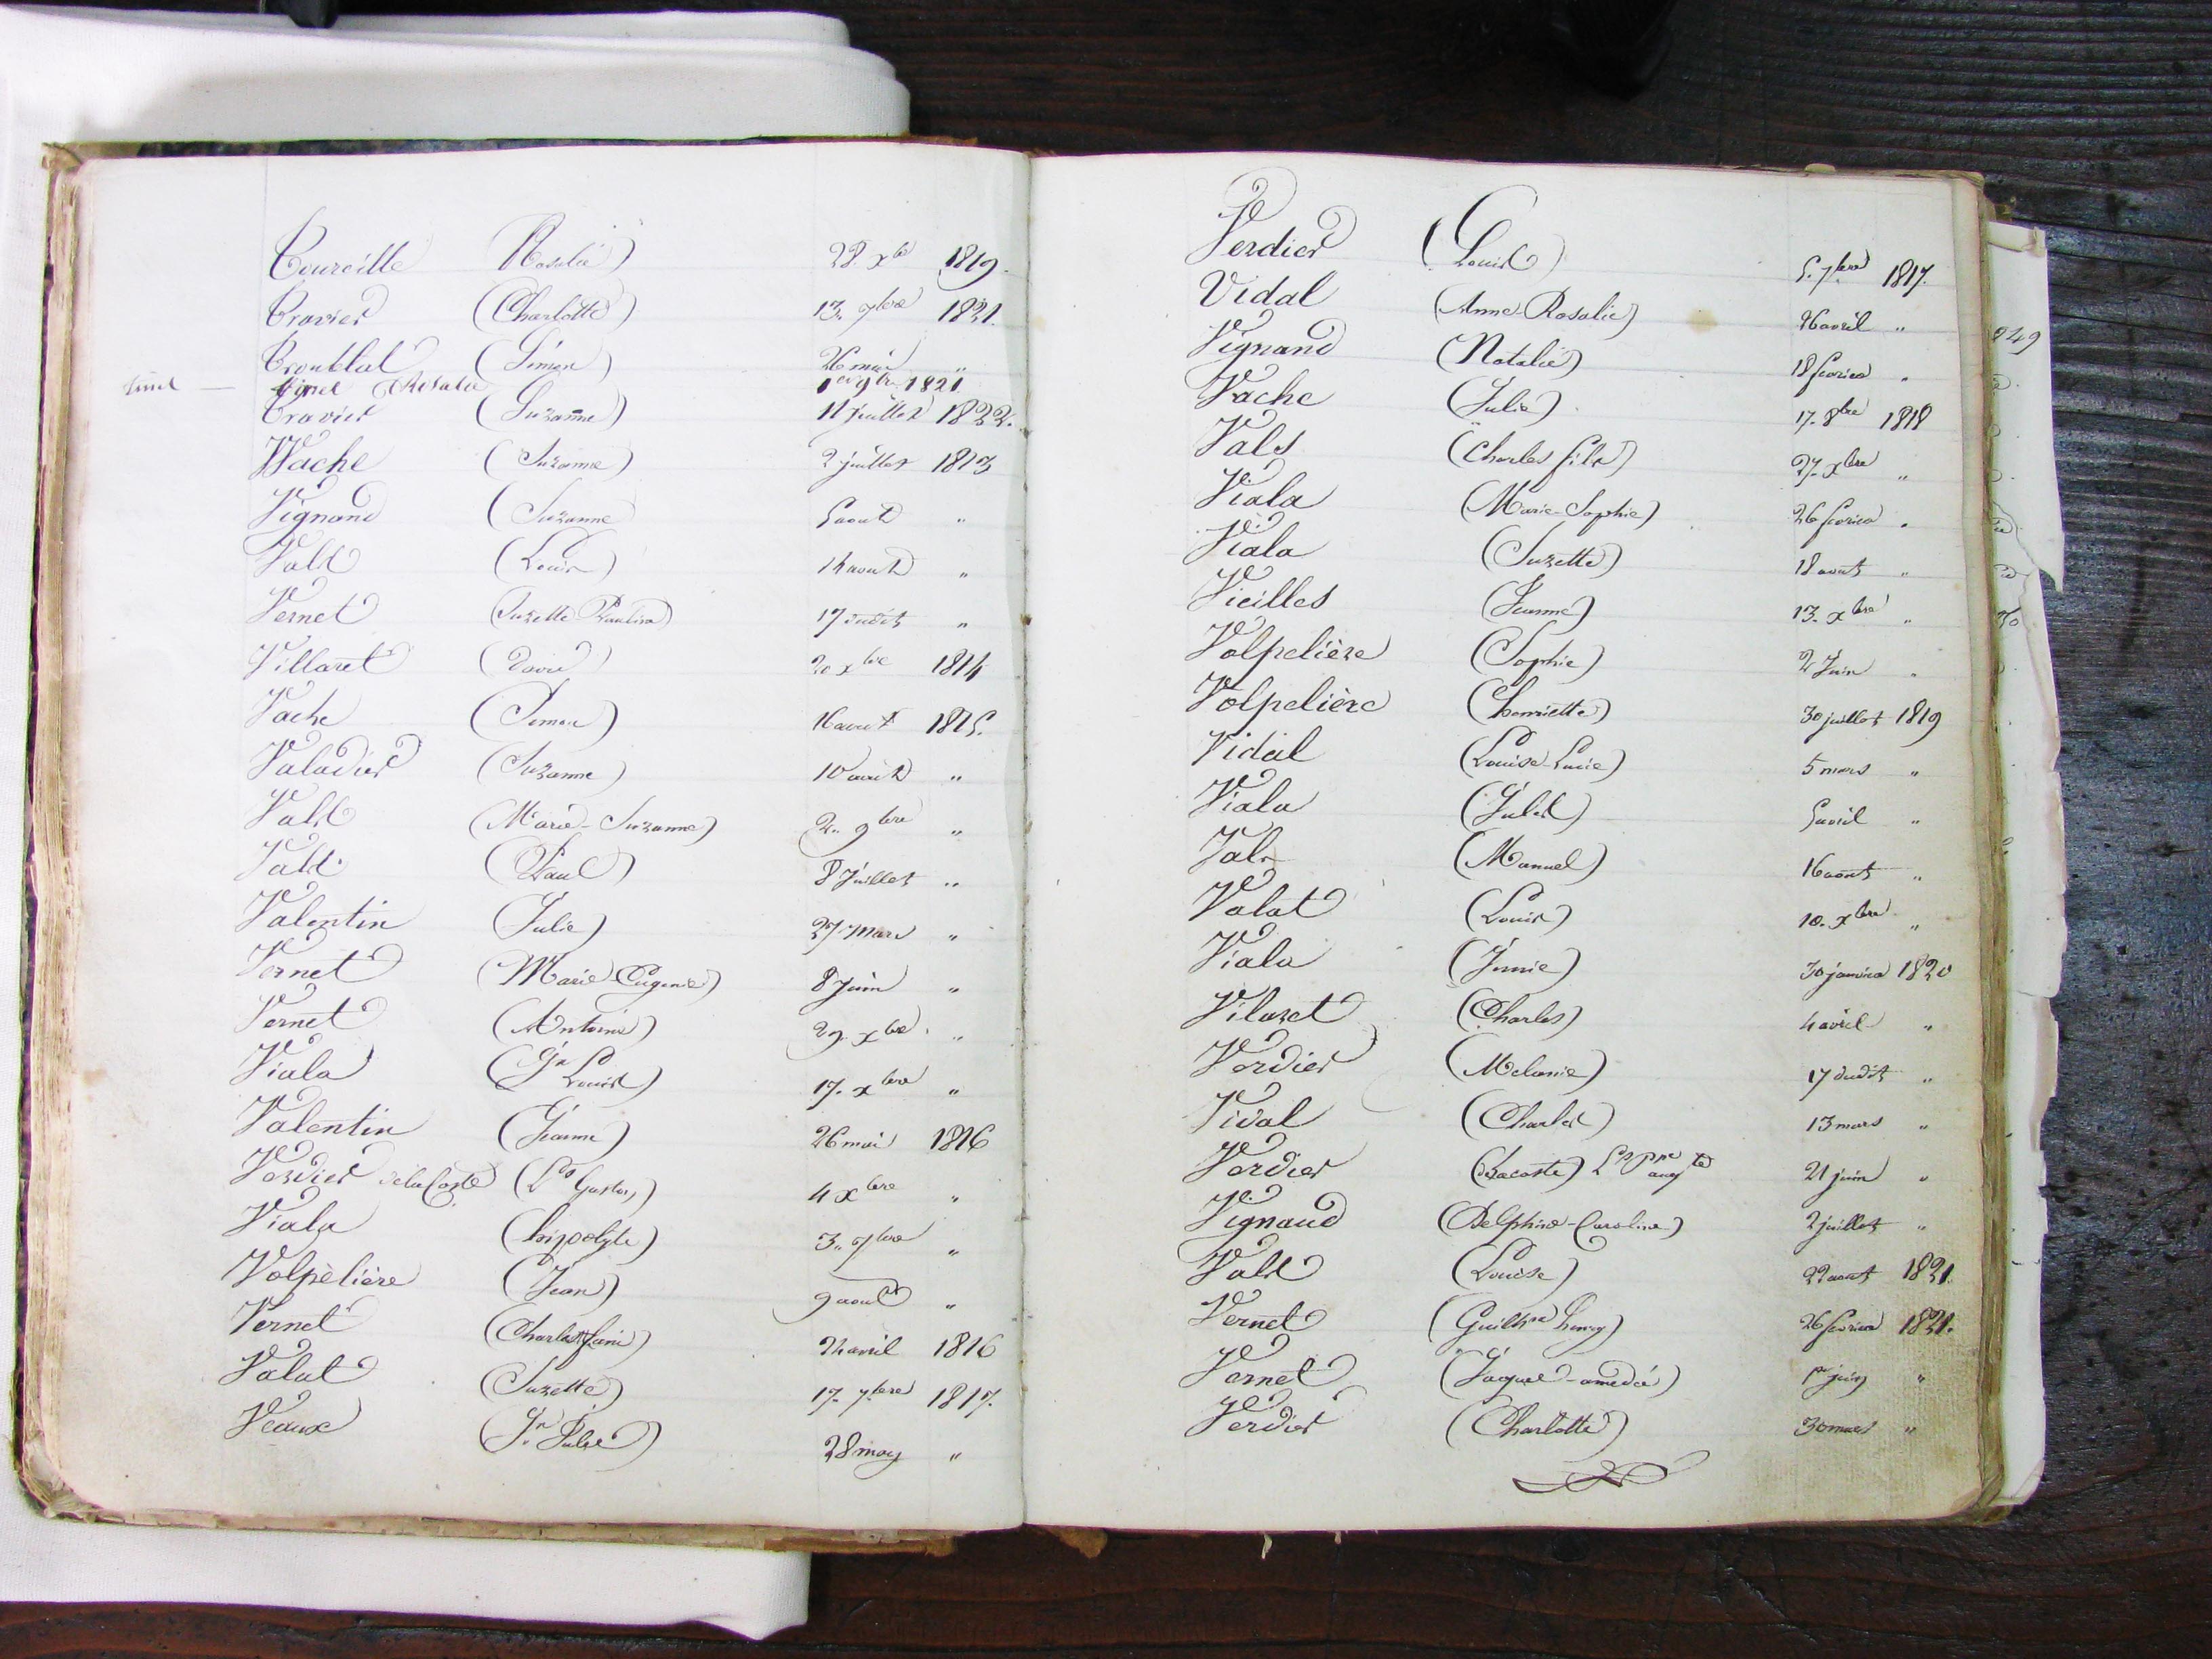 Toureille (Rosalie) 28. xbre 1819.
Travier (Charlotte) 13. 7bre 1821.
Troublat (Simon) 26 mai "
tinel — tinel Rosalie 1er 9bre 1821
Travier (Suzanne) 11 juillet 1822.
Vache (Suzanne) 2 juillet 1813
Vignaud (Suzanne) 5 aout "
Vals (Louis) 14 aout "
Vernet (Suzette Pauline) 17 dudit "
Villaret (David) 20 xbre 1814
Vache (Simon) 16 aout 1815.
Valadier (Suzanne) 10 "
Vals (Marie-Suzanne) 2. 9bre "
Vals (Paul) 8 Juillet "
Valentin (Julie) 27 Mars "
Vernet (Marie-Eugenie) 8 Juin "
Vernet (Antoine) 29. xbre. "
Viala (Jn Louis) 17. xbre "
Valentin (Jeanne) 26 mai 1816
Verdier de la Coste (Ls Gustav) 4 xbre "
Viala (hippolyte) 3. 7bre "
Volpelière (Jean) 9 aout "
Vernet (Charles) 24 avril 1816
Valat (Suzette) 17. 7bre 1817.
Veaux (Jn Jules) 28 may "
Verdier (Louis) 5. 7bre 1817.
Vidal (Anne-Rosalie) 26 avril "
Vignaud (Natalie) 18 fevrier "
Vache (Julie) 17. 8bre 1818
Vals (Charles fils) 27. xbre "
Viala (Marie-Sophie) 26 fevrier "
Viala (Suzette) 18 aout "
Vieilles (Jeanne) 13. xbre "
Volpelière (Sophie) 2 Juin "
Volpelière (henriette) 30 juillet 1819
Vidal (Louise-Lucie) 5 mars "
Viala (Jules) 5 avril "
Vals (Manuel) 16 aout "
Valat (Louis) 10. xbre "
Viala (Jennie) 30 janvier 1820
Vilaret (Charles) 4 avril "
Verdier (Melanie) 17 dudit "
Vidal (Charles) 13 mars "
Verdier (de Lacoste) 21 juin "
Vignaud (Delphine-Caroline) 2 juillet "
Vals (Louise) 22 aout 1821.
Vernet (Guilhme henry) 26 fevrier 1821.
Vernet (Jaques-amedée) 1er juin "
Verdier (Charlotte) 30 mars "
249